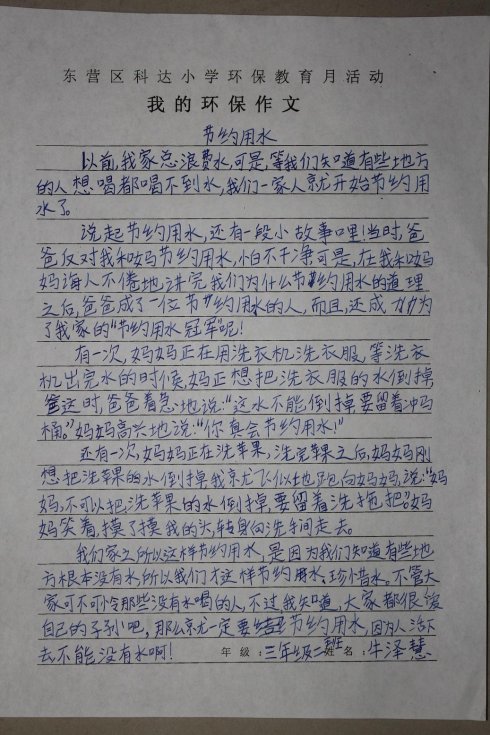 东营区科达小学环保教育月活动
我的环保作文
节约用水
以前,我家总浪费水,可是,等我们知道有些地方
的人想喝都喝不到水,我们一家人就开始节约用
水了。
说起节约用水,还有一段小故事哩!当时,爸
爸反对我和妈妈节约用水,怕不干净可是,在我和妈
妈诲人不倦地讲完我们为什么节约用水的道理
之后,爸爸成了一位节约用水的人,而且,还成为
了我家的“节约用水冠军”呢!
有一次,妈妈正在用洗衣机洗衣服,等洗衣
机出完水的时候,妈正想把洗衣服的水倒掉,
这时,爸爸着急地说:“这水不能倒掉,要留着冲马
桶。”妈妈高兴地说:“你真会节约用水!”
还有一次,妈妈正在洗苹果,洗完苹果之后,妈妈刚
想把洗苹果的水倒掉我就飞似地跑向妈妈,说:“妈
妈,不可以把洗苹果的水倒掉,要留着洗拖把。”妈
妈笑着,摸了摸我的头,转身向洗手间走去。
我们家之所以这样节约用水,是因为我们知道有些地
方根本没有水所以我们才这样节约用水,珍惜水。不管大
家可不可怜那些没有水喝的人,不过我知道,大家都很爱
自己的子孙吧,那么就一定要节约用水,因为人治不
去不能没有水啊! 年级:三年级二班 姓名:牛泽慧